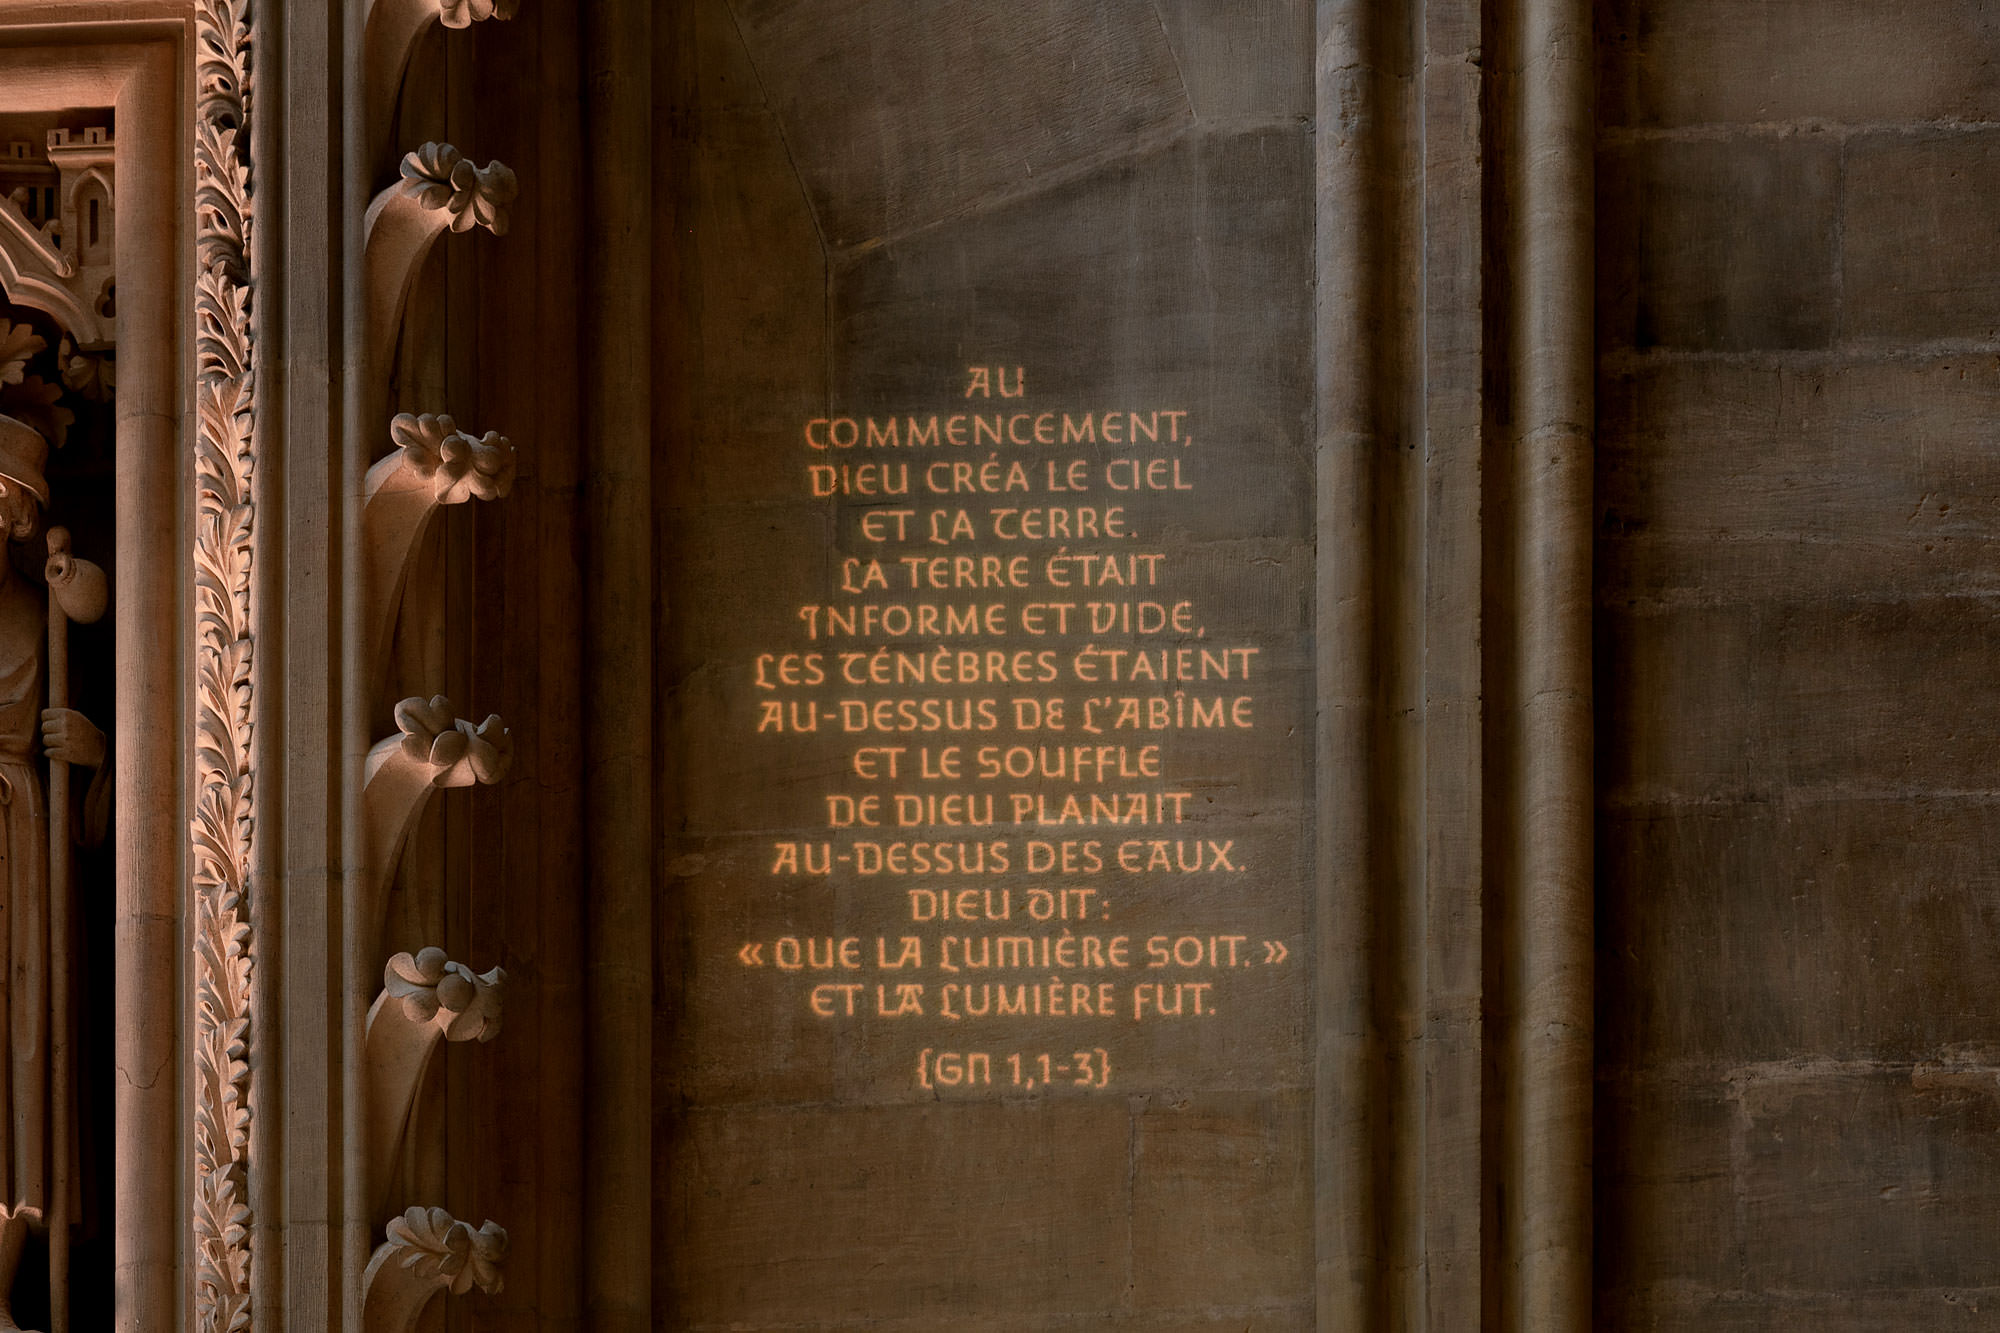 AU
COMMENCEMENT,
DIEU CRÉA LE CIEL
ET LA TERRE.
LA TERRE ÉTAIT
INFORME ET VIDE,
LES TÉNÈBRES ÉTAIENT
AU-DESSUS DE L'ABÎME
ET LE SOUFFLE
DE DIEU PLANAIT
AU-DESSUS DES EAUX.
DIEU DIT :
« QUE LA LUMIÈRE SOIT. »
ET LA LUMIÈRE FUT.
{GN 1,1-3}